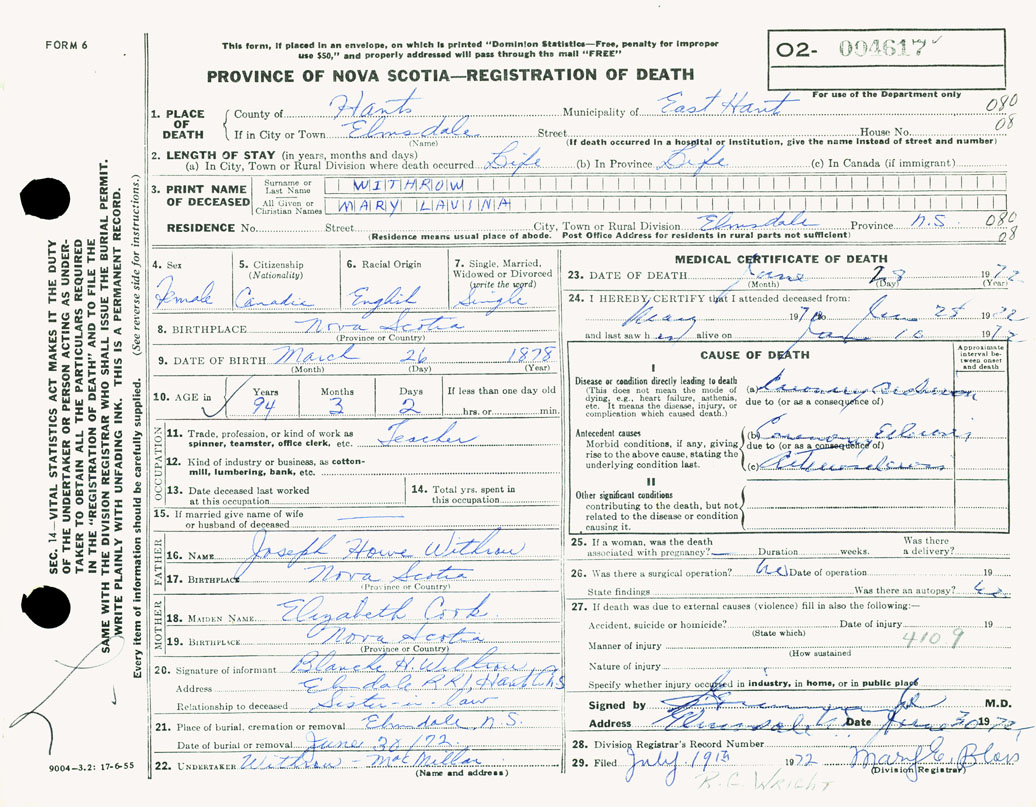 FORM 6
This form, if placed in an envelope, on which is printed "Dominion Statistics—Free, penalty for improper
use $50," and properly addressed will pass through the mail "FREE"
PROVINCE OF NOVA SCOTIA—REGISTRATION OF DEATH
O2- 004617
For use of the Department only
1. PLACE OF DEATH { County of Hants Municipality of East Hant 080
If in City or Town Elmsdale Street House No. 08
(Name) (If death occurred in a hospital or institution, give the name instead of street and number)
2. LENGTH OF STAY (in years, months and days)
(a) In City, Town or Rural Division where death occurred Life (b) In Province Life (c) In Canada (if immigrant)
3. PRINT NAME OF DECEASED
Surname or Last Name WITHROW
All Given or Christian Names MARY LAVINA
RESIDENCE No. Street City, Town or Rural Division Elmsdale Province N.S. 080
(Residence means usual place of abode. Post Office Address for residents in rural parts not sufficient) 08
SEC. 14—VITAL STATISTICS ACT MAKES IT THE DUTY
OF THE UNDERTAKER OR PERSON ACTING AS UNDER-
TAKER TO OBTAIN ALL THE PARTICULARS REQUIRED
IN THE "REGISTRATION OF DEATH" AND TO FILE THE
SAME WITH THE DIVISION REGISTRAR WHO SHALL ISSUE THE BURIAL PERMIT.
WRITE PLAINLY WITH UNFADING INK. THIS IS A PERMANENT RECORD.
Every item of information should be carefully supplied. (See reverse side for instructions.)
4. Sex
Female
5. Citizenship
(Nationality)
Canadia
6. Racial Origin
English
7. Single, Married,
Widowed or Divorced
(write the word)
Single
8. BIRTHPLACE Nova Scotia
(Province or Country)
9. DATE OF BIRTH March 26 1878
(Month) (Day) (Year)
10. AGE in
Years Months Days If less than one day old
94 3 2 hrs. or min.
OCCUPATION
11. Trade, profession, or kind of work as Teacher
spinner, teamster, office clerk, etc.
12. Kind of industry or business, as cotton-
mill, lumbering, bank, etc.
13. Date deceased last worked
at this occupation
14. Total yrs. spent in
this occupation
15. If married give name of wife
or husband of deceased
FATHER
16. NAME Joseph Howe Withrow
17. BIRTHPLACE Nova Scotia
(Province or Country)
MOTHER
18. MAIDEN NAME Elizabeth Cook
19. BIRTHPLACE Nova Scotia
(Province or Country)
20. Signature of informant Blanche H. Withrow
Address Elmsdale RR1, Hants N.S
Relationship to deceased Sister-in-law
21. Place of burial, cremation or removal Elmsdale, N.S.
Date of burial or removal June 30/72
22. UNDERTAKER Withrow - MacMillan
(Name and address)
9004-3.2: 17-6-55
MEDICAL CERTIFICATE OF DEATH
23. DATE OF DEATH June 28 1972
(Month) (Day) (Year)
24. I HEREBY CERTIFY that I attended deceased from:
1970 to June 28 1972
and last saw her alive on 1972
CAUSE OF DEATH
Approximate
interval be-
tween onset
and death
I
Disease or condition directly leading to death
(This does not mean the mode of
dying, e.g., heart failure, asthenia,
etc. It means the disease, injury, or
complication which caused death.)
(a) Coronary
due to (or as a consequence of)
Antecedent causes
Morbid conditions, if any, giving
rise to the above cause, stating the
underlying condition last.
(b) Coronary
due to (or as a consequence of)
(c)
II
Other significant conditions
contributing to the death, but not
related to the disease or condition
causing it.
25. If a woman, was the death
associated with pregnancy? Duration weeks. Was there
a delivery?
26. Was there a surgical operation? no Date of operation 19
State findings Was there an autopsy? no
27. If death was due to external causes (violence) fill in also the following:—
Accident, suicide or homicide? Date of injury 19
(State which)
Manner of injury 410 9
(How sustained
Nature of injury
Specify whether injury occurred in industry, in home, or in public place
Signed by M.D.
Address Elmsdale Date June 30 1972
28. Division Registrar's Record Number
29. Filed July 19th 1972 Mary E. Blois
(Division Registrar)
R.C. WRIGHT